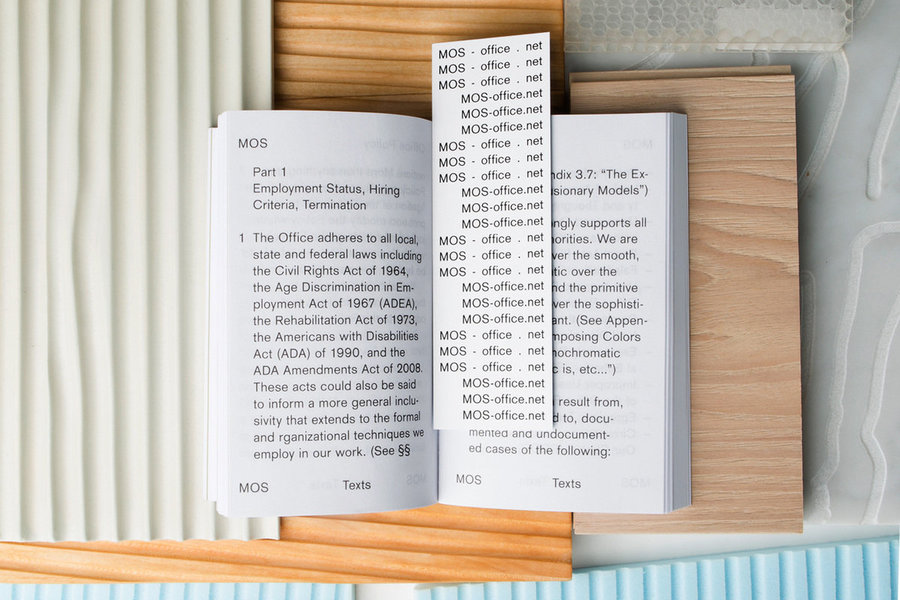 MOS
Part 1
Employment Status, Hiring
Criteria, Termination
1 The Office adheres to all local,
state and federal laws including
the Civil Rights Act of 1964,
the Age Discrimination in Em-
ployment Act of 1967 (ADEA),
the Rehabilitation Act of 1973,
the Americans with Disabilities
Act (ADA) of 1990, and the
ADA Amendments Act of 2008.
These acts could also be said
to inform a more general inclu-
sivity that extends to the formal
and rganizational techniques we
employ in our work. (See §§
MOS Texts
MOS - office . net
MOS - office . net
MOS - office . net
MOS-office.net
MOS-office.net
MOS-office.net
MOS - office . net
MOS - office . net
MOS - office . net
MOS-office.net
MOS-office.net
MOS-office.net
MOS - office . net
MOS - office . net
MOS - office . net
MOS-office.net
MOS-office.net
MOS-office.net
MOS - office . net
MOS - office . net
MOS - office . net
MOS-office.net
MOS-office.net
MOS-office.net
3.7: “The Ex-
Models”)
supports all
We are
the smooth,
over the
the primitive
the sophisti-
(See Appen-
Colors
is, etc...”)
result from,
to, docu-
mented and undocument-
ed cases of the following:
MOS Texts